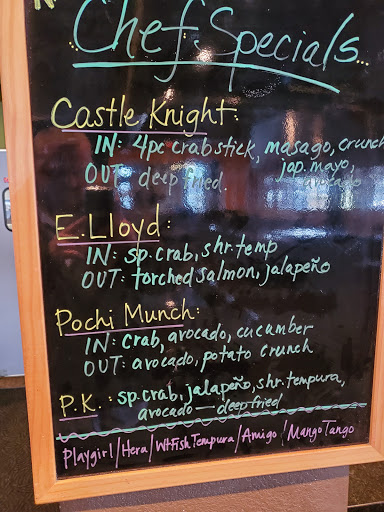 Chef Specials
Castle Knight:
IN: 4pc crabstick, masago, crunch
jap. mayo,
avocado
OUT: deep fried.
E.Lloyd:
IN: sp. crab, shr. temp
OUT: torched salmon, jalapeño
Pochi Munch:
IN: crab, avocado, cucumber
OUT: avocado, potato crunch
P.K.: sp. crab, jalapeño, shr. tempura,
avocado — deep fried
Playgirl/Hera/Wht Fish Tempura/Amigo/Mango Tango